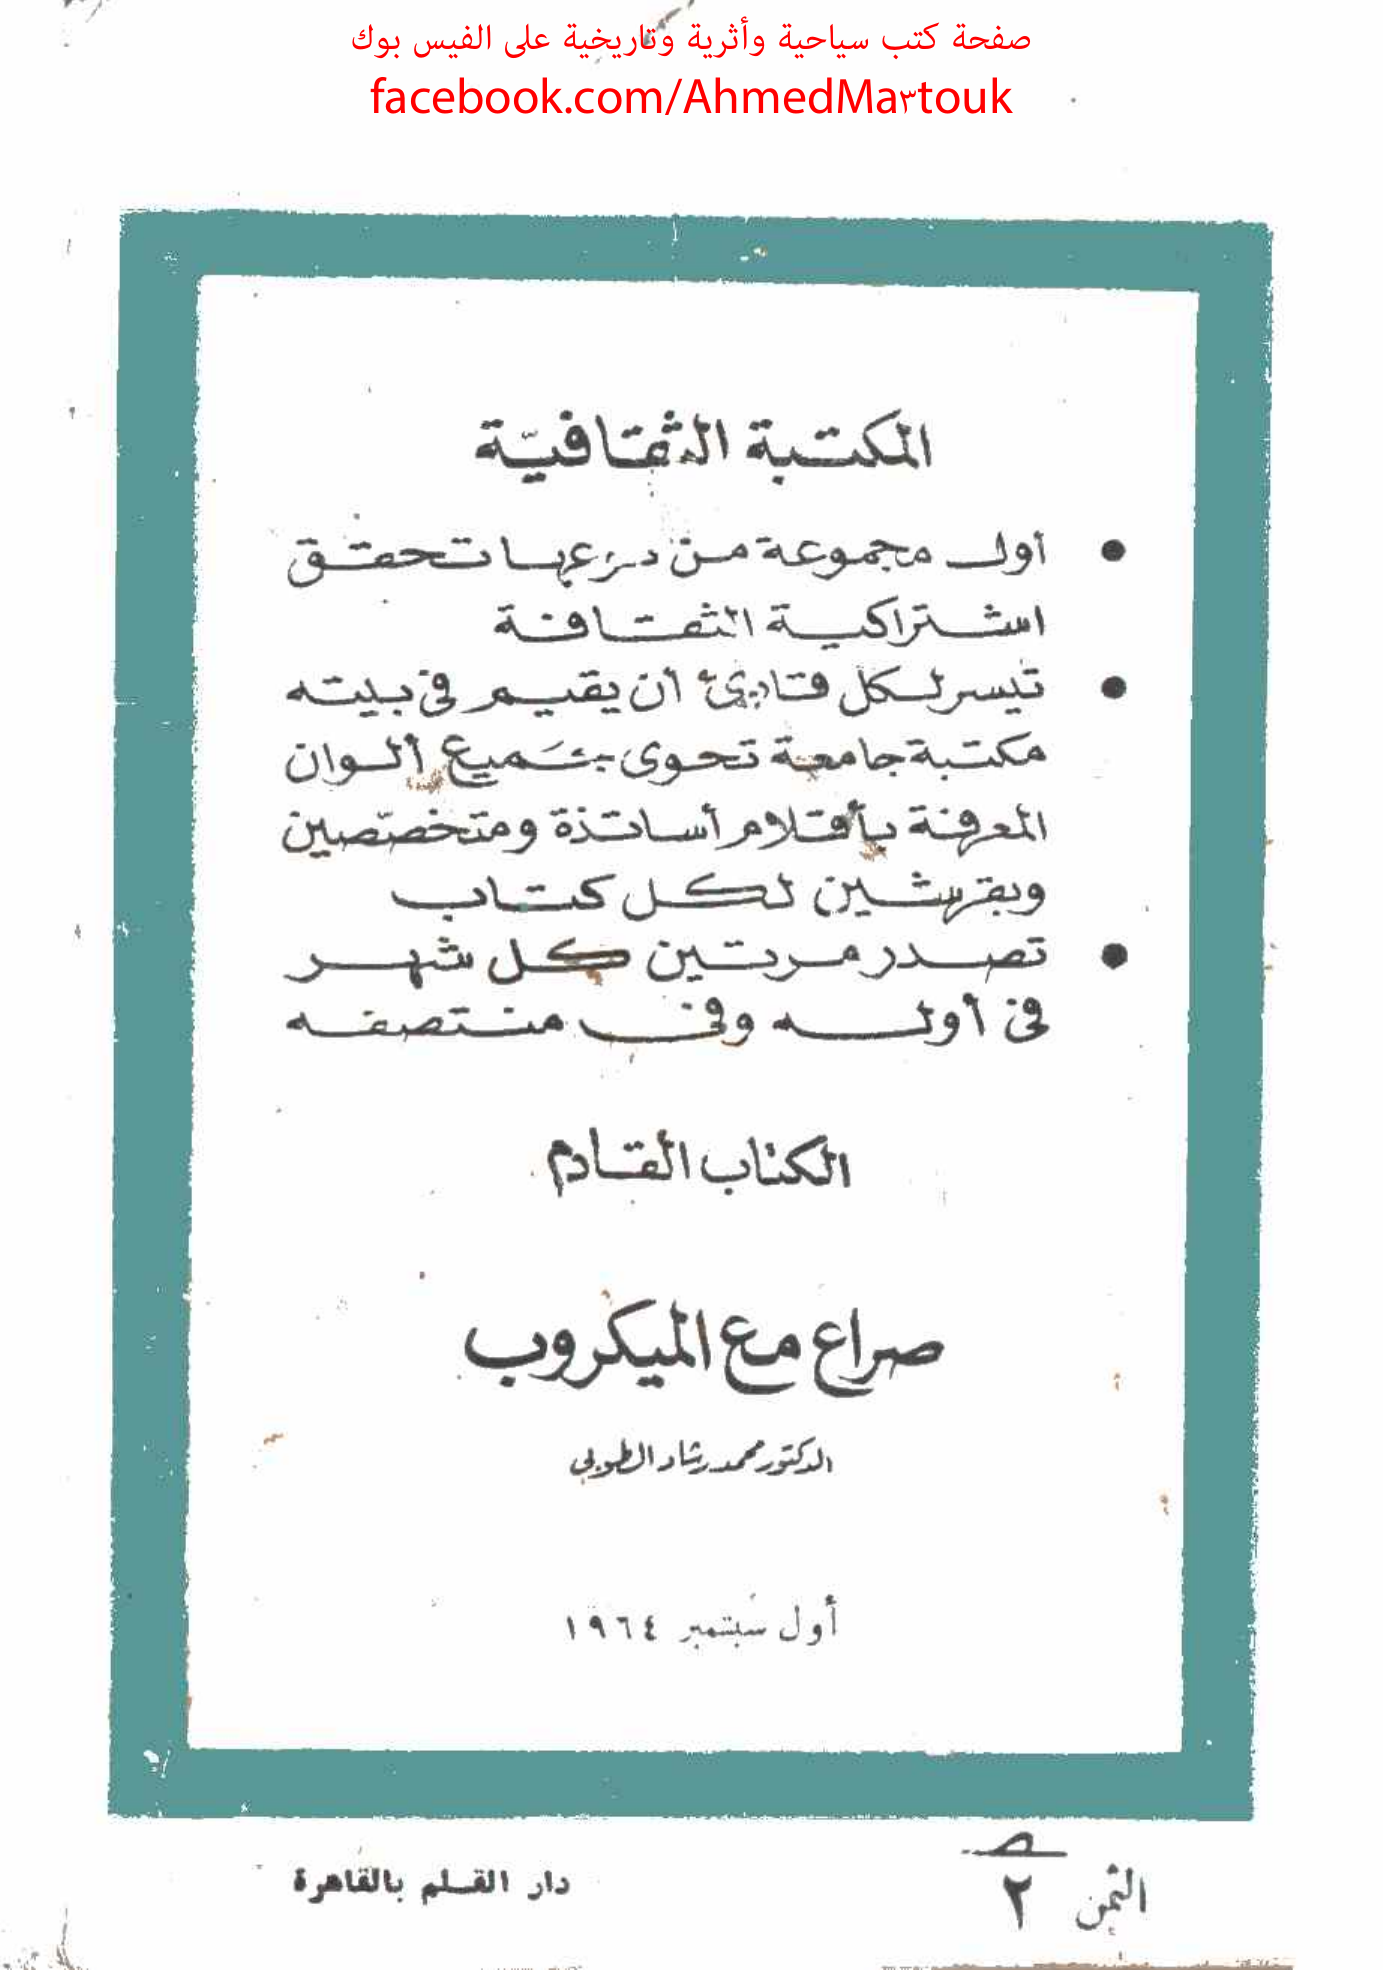 صفحة كتب سياحية وأثرية وتاريخية على الفيس بوك
facebook.com/AhmedMa٣touk
المكتبة الثقافيّة
● أول مجموعة من نوعها تحقق
اشتراكية الثقافة
● تيسر لكل قارئ أن يقيم في بيته
مكتبة جامعة تحوى جميع ألوان
المعرفة بأقلام أساتذة ومتخصّصين
وبقرشين لكل كتاب
● تصدر مرتين كل شهر
في أوله وفي منتصفه
الكتاب القادم
صراع مع الميكروب
الدكتور محمد رشاد الطوبي
أول سبتمبر ١٩٦٤
الثمن ٢
دار القلم بالقاهرة